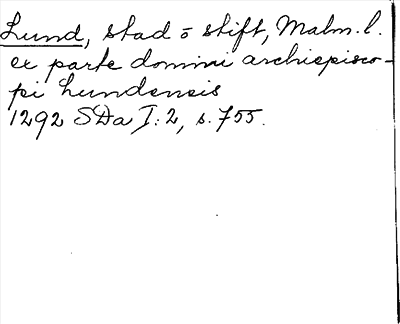 Lund, stad o stift, Malm. l.
ex parte domini archiepisco-
pi Lundensis
1292 SDa I: 2, s. 755.